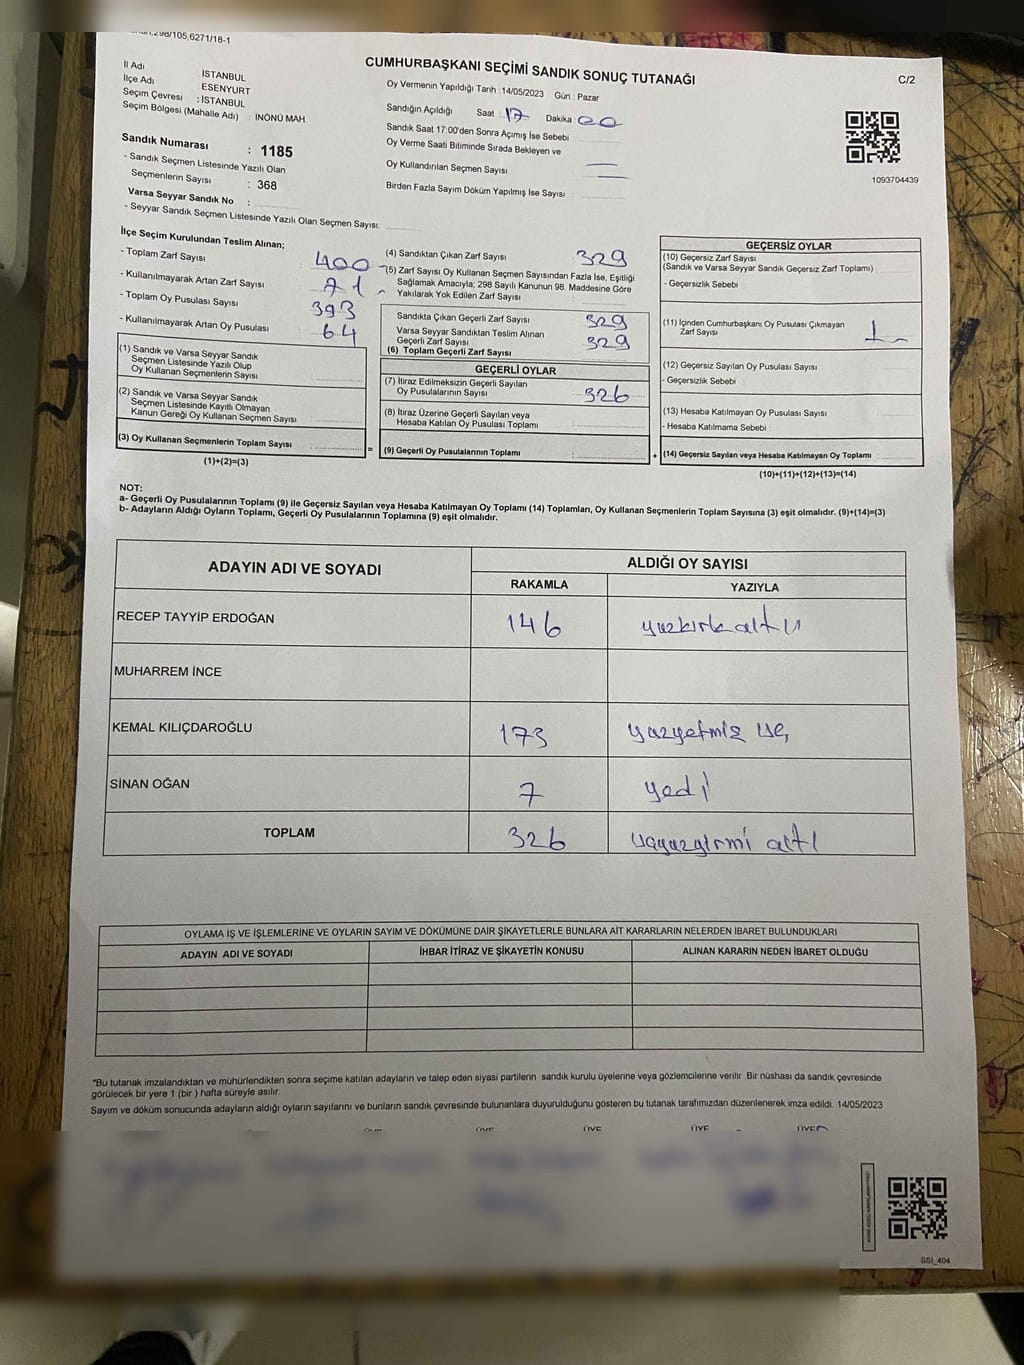 298/105,6271/18-1
CUMHURBAŞKANI SEÇİMİ SANDIK SONUÇ TUTANAĞI
C/2
İl Adı : İSTANBUL
İlçe Adı : ESENYURT
Seçim Çevresi : İSTANBUL
Seçim Bölgesi (Mahalle Adı) : İNÖNÜ MAH.
Sandık Numarası : 1185
- Sandık Seçmen Listesinde Yazılı Olan
Seçmenlerin Sayısı : 368
Varsa Seyyar Sandık No :
- Seyyar Sandık Seçmen Listesinde Yazılı Olan Seçmen Sayısı:
Oy Vermenin Yapıldığı Tarih : 14/05/2023 Gün : Pazar
Sandığın Açıldığı Saat : 17 Dakika : 00
Sandık Saat 17:00'den Sonra Açımış İse Sebebi
Oy Verme Saati Bitiminde Sırada Bekleyen ve
Oy Kullandırılan Seçmen Sayısı
Birden Fazla Sayım Döküm Yapılmış İse Sayısı
1093704439
İlçe Seçim Kurulundan Teslim Alınan;
- Toplam Zarf Sayısı 400
- Kullanılmayarak Artan Zarf Sayısı 71
- Toplam Oy Pusulası Sayısı 393
- Kullanılmayarak Artan Oy Pusulası 64
(1) Sandık ve Varsa Seyyar Sandık
Seçmen Listesinde Yazılı Olup
Oy Kullanan Seçmenlerin Sayısı
(2) Sandık ve Varsa Seyyar Sandık
Seçmen Listesinde Kayıtlı Olmayan
Kanun Gereği Oy Kullanan Seçmen Sayısı
(3) Oy Kullanan Seçmenlerin Toplam Sayısı :
(1)+(2)=(3)
(4) Sandıktan Çıkan Zarf Sayısı 329
(5) Zarf Sayısı Oy Kullanan Seçmen Sayısından Fazla İse, Eşitliği
Sağlamak Amacıyla; 298 Sayılı Kanunun 98. Maddesine Göre
Yakılarak Yok Edilen Zarf Sayısı
Sandıkta Çıkan Geçerli Zarf Sayısı 329
Varsa Seyyar Sandıktan Teslim Alınan
Geçerli Zarf Sayısı 329
(6) Toplam Geçerli Zarf Sayısı
GEÇERLİ OYLAR
(7) İtiraz Edilmeksizin Geçerli Sayılan
Oy Pusulalarının Sayısı 326
(8) İtiraz Üzerine Geçerli Sayılan veya
Hesaba Katılan Oy Pusulası Toplamı
= (9) Geçerli Oy Pusulalarının Toplamı :
GEÇERSİZ OYLAR
(10) Geçersiz Zarf Sayısı
(Sandık ve Varsa Seyyar Sandık Geçersiz Zarf Toplamı)
- Geçersizlik Sebebi
(11) İçinden Cumhurbaşkanı Oy Pusulası Çıkmayan
Zarf Sayısı
(12) Geçersiz Sayılan Oy Pusulası Sayısı
- Geçersizlik Sebebi
(13) Hesaba Katılmayan Oy Pusulası Sayısı
- Hesaba Katılmama Sebebi
+ (14) Geçersiz Sayılan veya Hesaba Katılmayan Oy Toplamı
(10)+(11)+(12)+(13)=(14)
NOT:
a- Geçerli Oy Pusulalarının Toplamı (9) ile Geçersiz Sayılan veya Hesaba Katılmayan Oy Toplamı (14) Toplamları, Oy Kullanan Seçmenlerin Toplam Sayısına (3) eşit olmalıdır. (9)+(14)=(3)
b- Adayların Aldığı Oyların Toplamı, Geçerli Oy Pusulalarının Toplamına (9) eşit olmalıdır.
ADAYIN ADI VE SOYADI
ALDIĞI OY SAYISI
RAKAMLA YAZIYLA
RECEP TAYYİP ERDOĞAN 146 yüzkırkaltı
MUHARREM İNCE
KEMAL KILIÇDAROĞLU 173 yüzyetmiş üç
SİNAN OĞAN 7 yedi
TOPLAM 326 üçyüzyirmi altı
OYLAMA İŞ VE İŞLEMLERİNE VE OYLARIN SAYIM VE DÖKÜMÜNE DAİR ŞİKAYETLERLE BUNLARA AİT KARARLARIN NELERDEN İBARET BULUNDUKLARI
ADAYIN ADI VE SOYADI İHBAR İTİRAZ VE ŞİKAYETİN KONUSU ALINAN KARARIN NEDEN İBARET OLDUĞU
*Bu tutanak imzalandıktan ve mühürlendikten sonra seçime katılan adayların ve talep eden siyasi partilerin sandık kurulu üyelerine veya gözlemcilerine verilir. Bir nüshası da sandık çevresinde
görülecek bir yere 1 (bir ) hafta süreyle asılır.
Sayım ve döküm sonucunda adayların aldığı oyların sayılarını ve bunların sandık çevresinde bulunanlara duyurulduğunu gösteren bu tutanak tarafımızdan düzenlenerek imza edildi. 14/05/2023
ÜYE ÜYE ÜYE ÜYE ÜYE
SSI_404